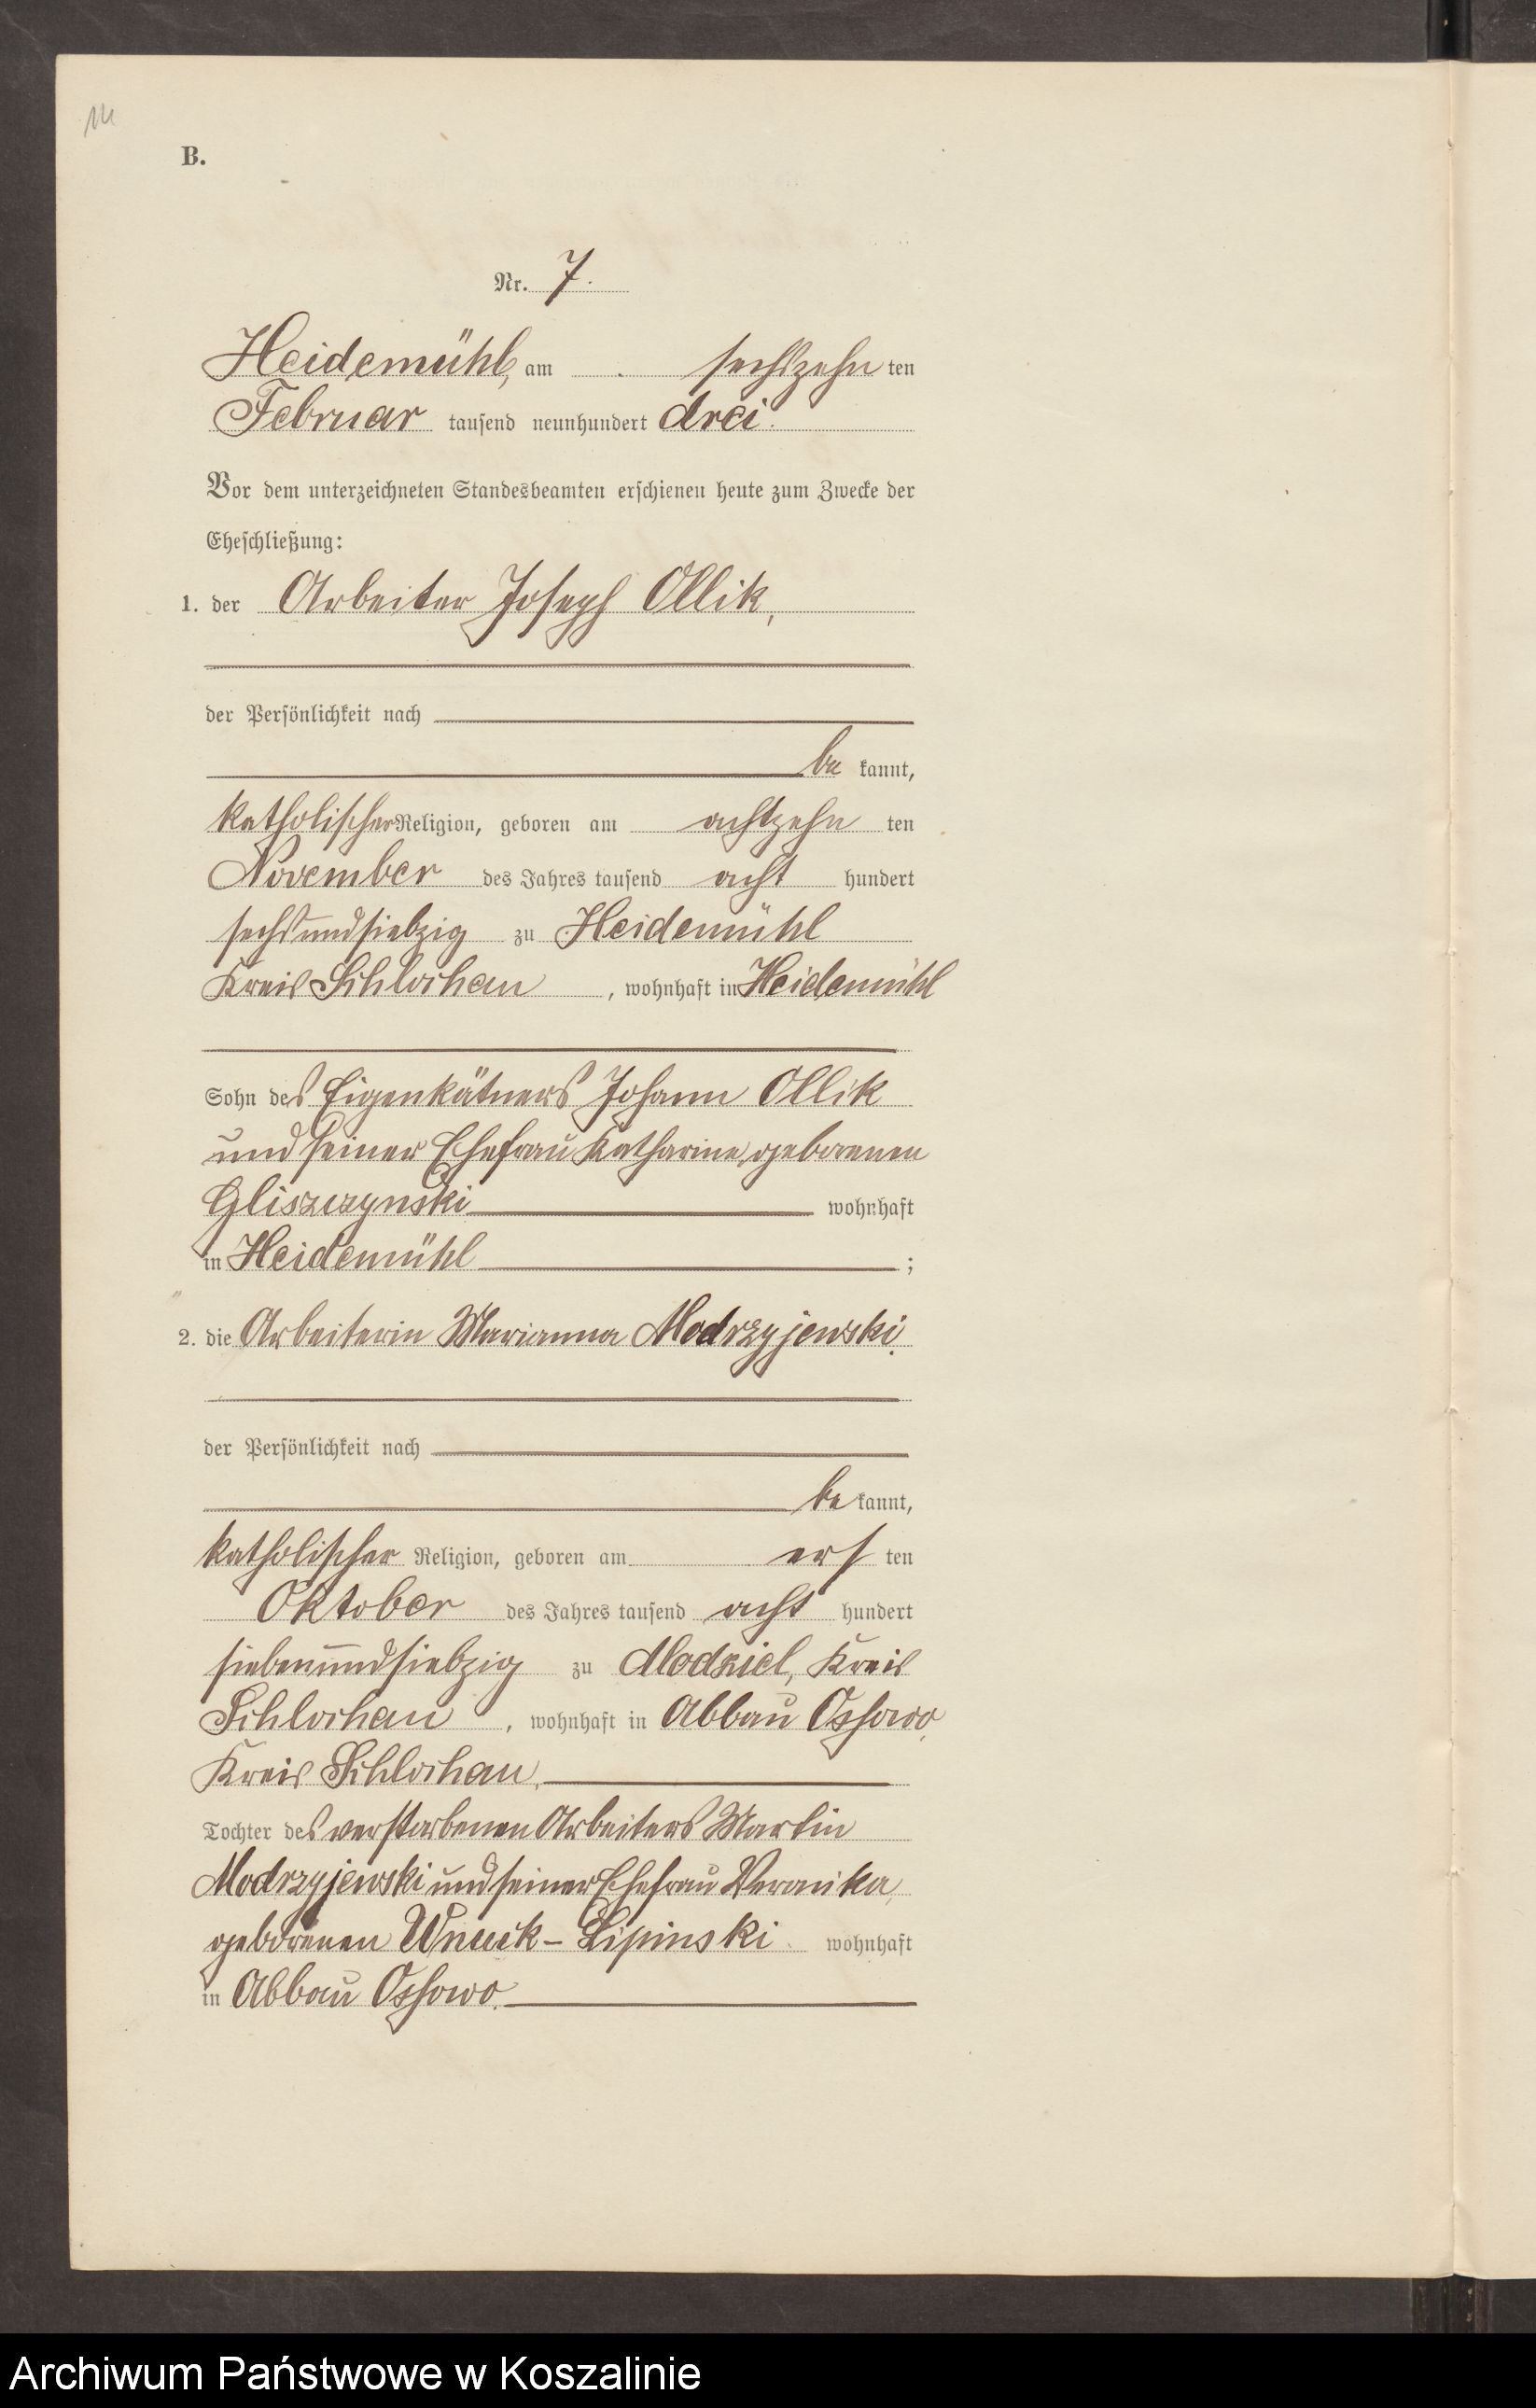 14
B.
Nr. 7.
Heidemühl, am sechszehn ten
Februar tausend neunhundert drei.
Vor dem unterzeichneten Standesbeamten erschienen heute zum Zwecke der
Eheschließung:
1. der Arbeiter Joseph Ollik,
der Persönlichkeit nach
be kannt,
katholischer Religion, geboren am achtzehn ten
November des Jahres tausend acht hundert
sechsundsiebzig zu Heidemühl
Kreis Schlochau, wohnhaft in Heidemühl
Sohn des Eigenkätners Johann Ollik
und seiner Ehefrau Katharine, geborenen
Gliszczynski wohnhaft
in Heidemühl ;
2. die Arbeiterin Marianna Modrzyjewski,
der Persönlichkeit nach
be kannt,
katholischer Religion, geboren am ers ten
Oktober des Jahres tausend acht hundert
siebenundsiebzig zu Modziel, Kreis
Schlochau, wohnhaft in Abbau Ossowo,
Kreis Schlochau,
Tochter des verstorbenen Arbeiters Martin
Modrzyjewski und seiner Ehefrau Veronika,
geborenen Wnuck-Lipinski wohnhaft
in Abbau Ossowo.
Archiwum Państwowe w Koszalinie